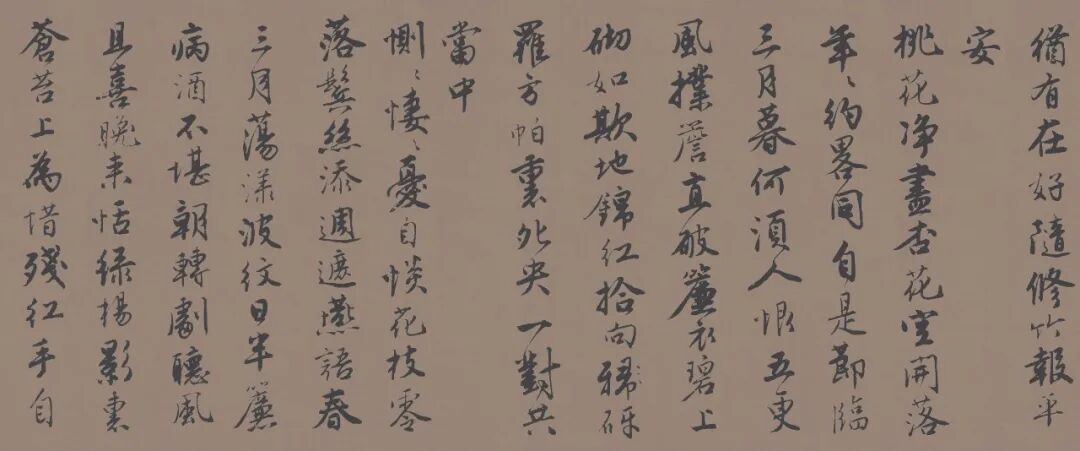 猶有在好隨修竹報平
安
桃花净盡杏花空開落
年〻約畧同自是節臨
三月暮何須人恨五更
風撲簷直破簾衣碧上
砌如欺地錦紅拾向砑
羅方帕裹夗央一對共
當中
惻〻悽〻憂自惔花枝零
落鬂絲添週遮燕語春
三月蕩漾波紋日半簾
病酒不堪朝轉劇聽風
且喜晚来恬緑楊影裏
蒼苔上為惜殘紅手自